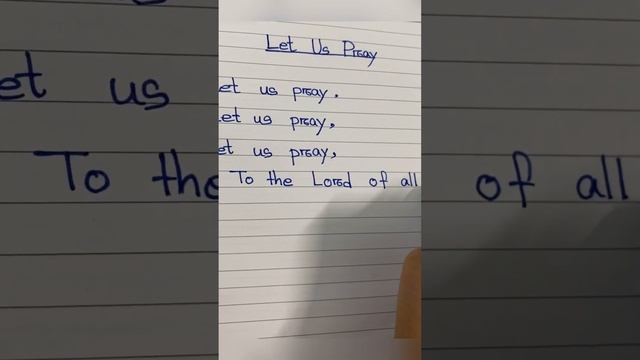 Let Us Pray
et us pray.
et us pray,
et us pray,
To the Lord of all